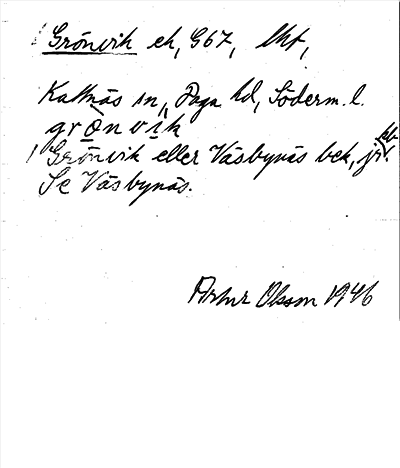 Grönvik ek, G67, lht,
Kattnäs sn, Daga hd, Söderm. l.
grönvik
Grönvik eller Väsbynäs bek, jr
Se Väsbynäs.
Artur Olsson 1946